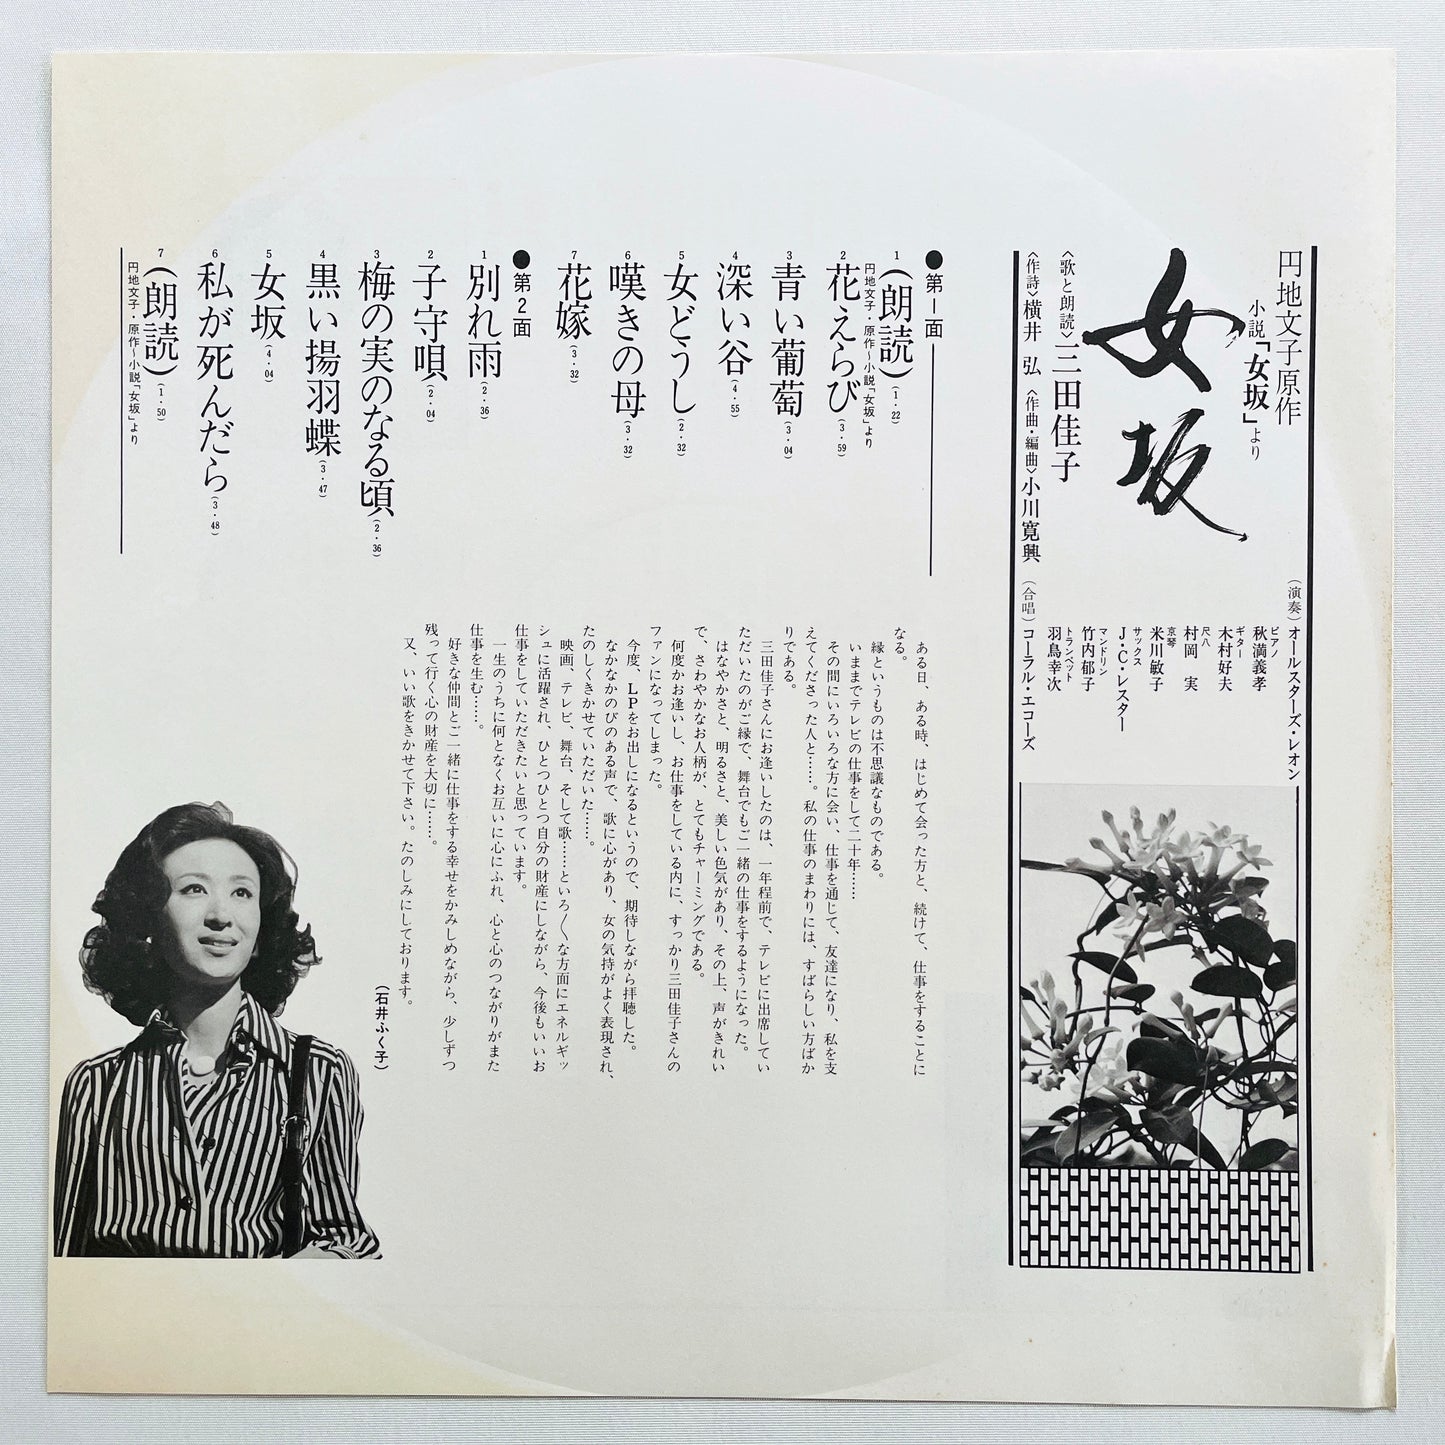 円地文子原作
小説「女坂」より
女坂
〈歌と朗読〉三田佳子
〈作詩〉横井 弘 〈作曲・編曲〉小川寛興
(演奏)オールスターズ・レオン
ピアノ 秋満義孝
ギター 木村好夫
尺八 村岡 実
京琴 米川敏子
サックス J・C・レスター
マンドリン 竹内郁子
トランペット 羽鳥幸次
(合唱)コーラル・エコーズ
●第1面
1 (朗読)(1・22)
円地文子・原作〜小説「女坂」より
2 花えらび(3・59)
3 青い葡萄(3・04)
4 深い谷(4・55)
5 女どうし(2・32)
6 嘆きの母(3・32)
7 花嫁(3・32)
●第2面
1 別れ雨(2・36)
2 子守唄(2・04)
3 梅の実のなる頃(2・36)
4 黒い揚羽蝶(3・47)
5 女坂(4・04)
6 私が死んだら(3・48)
7 (朗読)(1・50)
円地文子・原作〜小説「女坂」より
ある日、ある時、はじめて会った方と、続けて、仕事をすることに
なる。
縁というものは不思議なものである。
いままでテレビの仕事をして二十年……
その間にいろいろな方に会い、仕事を通じて、友達になり、私を支
えてくださった人と……。私の仕事のまわりには、すばらしい方ばか
りである。
三田佳子さんにお逢いしたのは、一年程前で、テレビに出席してい
ただいたのがご縁で、舞台でもご一緒の仕事をするようになった。
はなやかさと、明るさと、美しい色気があり、その上、声がきれい
で、さわやかなお人柄が、とてもチャーミングである。
何度かお逢いし、お仕事をしている内に、すっかり三田佳子さんの
ファンになってしまった。
今度、LPをお出しになるというので、期待しながら拝聴した。
なかなかのびのある声で、歌に心があり、女の気持がよく表現され、
たのしくきかせていただいた……。
映画、テレビ、舞台、そして歌……といろ〱な方面にエネルギッ
シュに活躍され、ひとつひとつ自分の財産にしながら、今後もいいお
仕事をしていただきたいと思っています。
一生のうちに何となくお互いに心にふれ、心と心のつながりがまた
仕事を生む……。
好きな仲間とご一緒に仕事をする幸せをかみしめながら、少しずつ
残って行く心の財産を大切に……。
又、いい歌をきかせて下さい。たのしみにしております。
(石井ふく子)